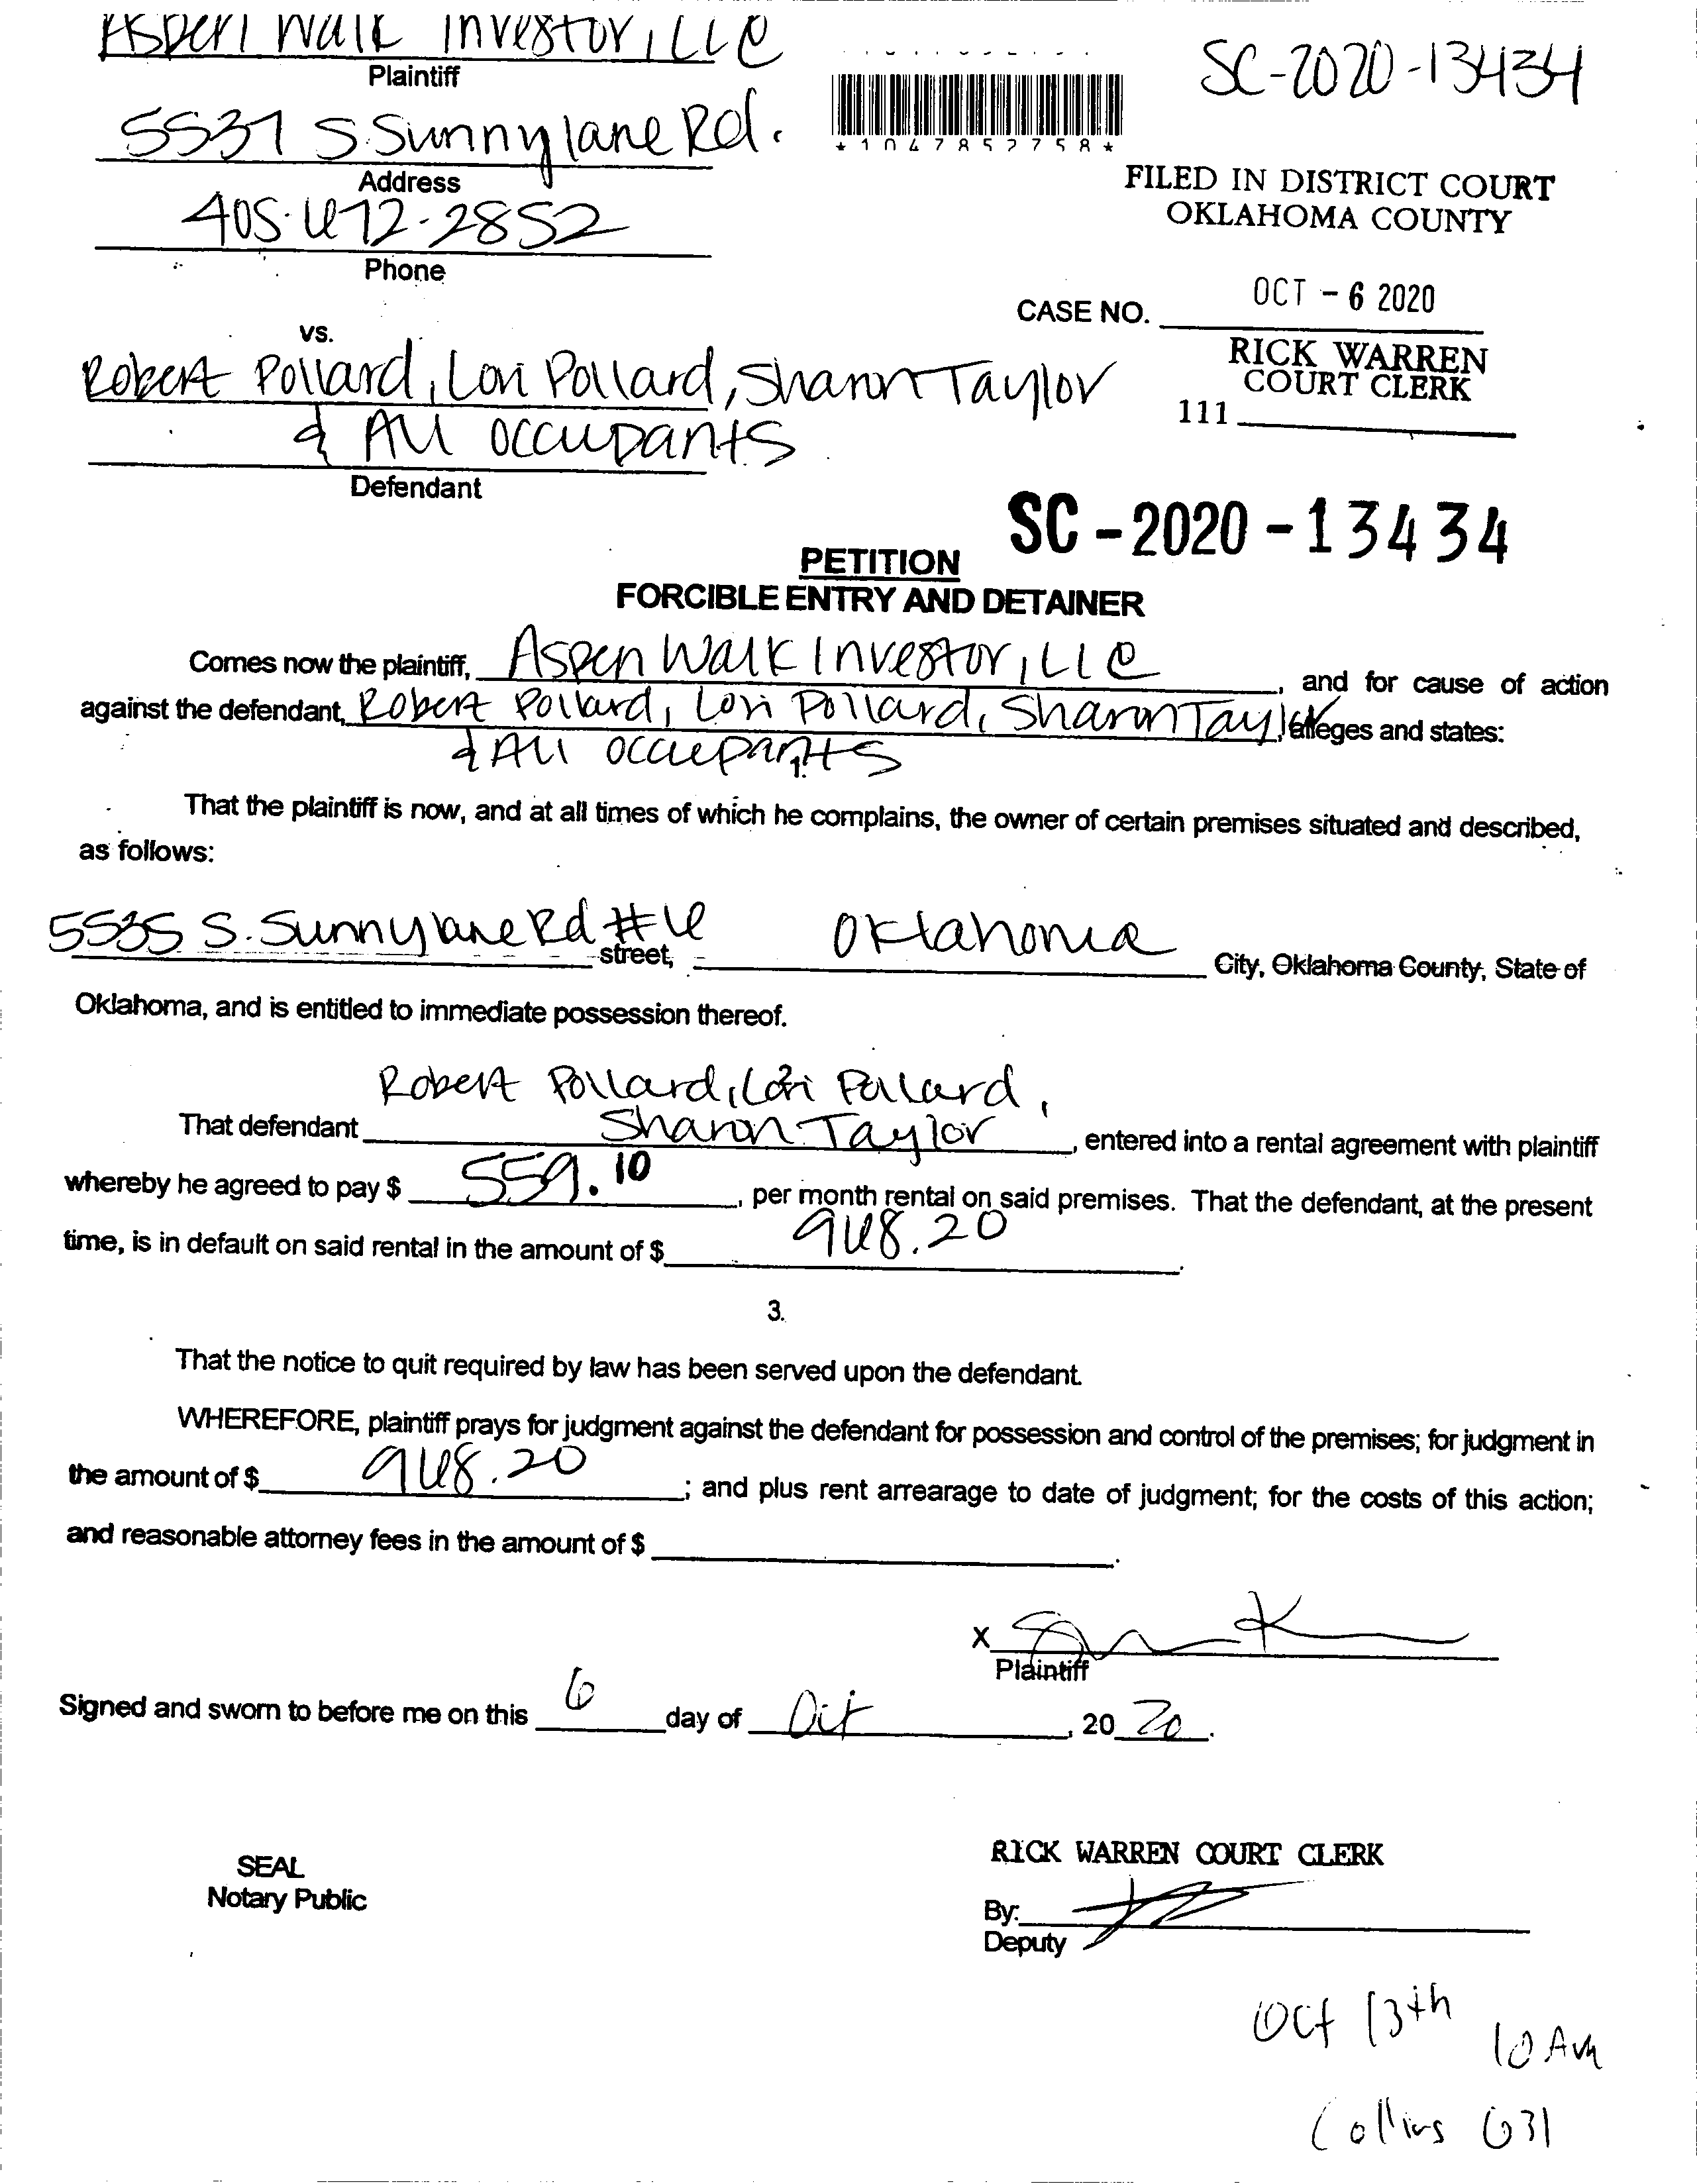 Aspen Walk Investor, LLC
Plaintiff
SC-2020-13434
5537 S. Sunnylane Rd.
*1047852758*
Address
FILED IN DISTRICT COURT
OKLAHOMA COUNTY
405-672-2852
Phone
OCT - 6 2020
CASE NO.
RICK WARREN
COURT CLERK
111
vs.
Robert Pollard, Lori Pollard, Sharon Taylor
& All occupants
Defendant
SC - 2020 - 13434
PETITION
FORCIBLE ENTRY AND DETAINER
Comes now the plaintiff, Aspen Walk Investor, LLC, and for cause of action
against the defendant, Robert Pollard, Lori Pollard, Sharon Taylor alleges and states:
& All occupants
1.
That the plaintiff is now, and at all times of which he complains, the owner of certain premises situated and described,
as follows:
5535 S. Sunnylane Rd #6 street, Oklahoma City, Oklahoma County, State of
Oklahoma, and is entitled to immediate possession thereof.
Robert Pollard, Lori Pollard,
That defendant Sharon Taylor, entered into a rental agreement with plaintiff
whereby he agreed to pay $ 559.10, per month rental on said premises. That the defendant, at the present
time, is in default on said rental in the amount of $ 968.20.
3.
That the notice to quit required by law has been served upon the defendant.
WHEREFORE, plaintiff prays for judgment against the defendant for possession and control of the premises; for judgment in
the amount of $ 968.20; and plus rent arrearage to date of judgment; for the costs of this action;
and reasonable attorney fees in the amount of $ .
X
Plaintiff
Signed and sworn to before me on this 6 day of Oct, 20 20.
SEAL
Notary Public
RICK WARREN COURT CLERK
By:
Deputy
Oct 13th
10 AM
Collins 631